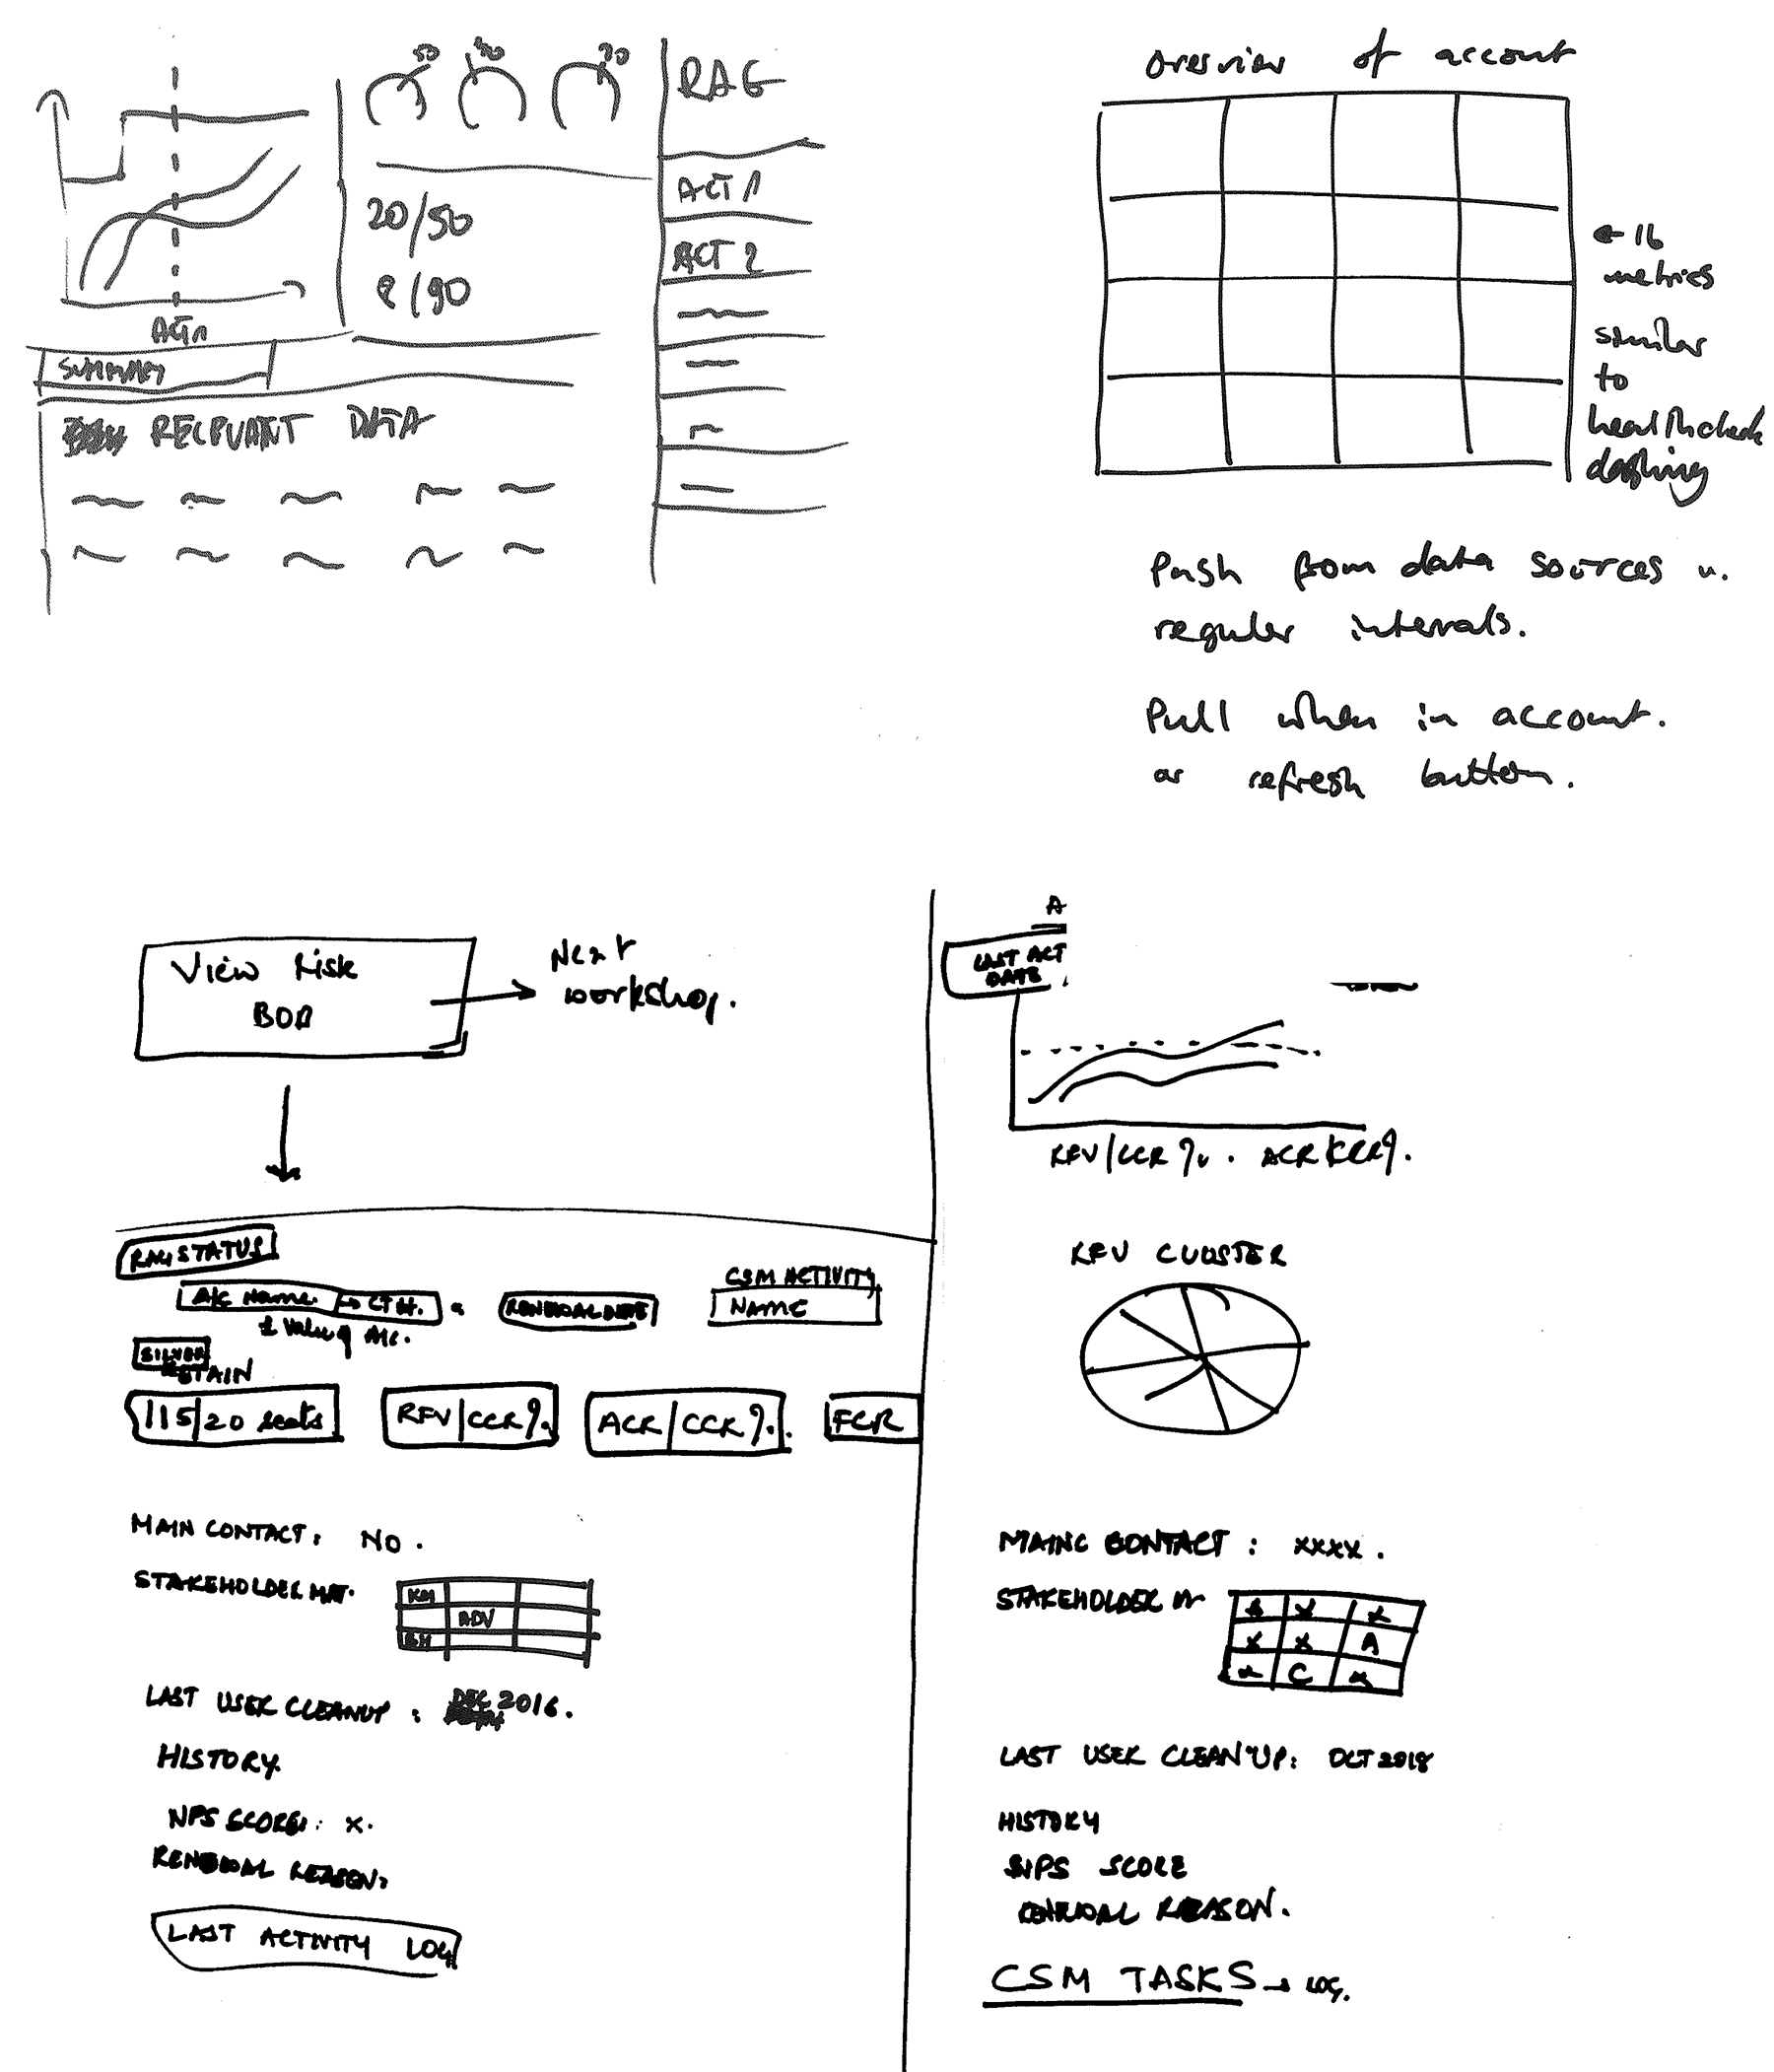 50
20
RAG
ACT 1
20/50
ACT 2
8/90
ACT 1
SUMMARY
RELEVANT DATA
overview of account
← 16
metrics
similar
to
healthcheck
dashing
Push from data sources
regular intervals.
Pull when in account.
or refresh button.
View Risk
BOB
Next
workshop.
RAG STATUS
A/C Name. → CTH.
£ Value of A/c.
RENEWAL DATE
CSM ACTIVITY
NAME
SILVER
RETAIN
115/20 seats
RFV/CCR %.
ACR/CCR %.
FCR
MAIN CONTACT: NO.
STAKEHOLDER MAT.
KM
ADV
BH
LAST USER CLEANUP: DEC 2016.
HISTORY.
NPS SCORE: x.
RENEWAL REASON:
LAST ACTIVITY LOG
A
LAST ACT
DATE
RFV/CCR %. ACR/CCR %.
RFV CLUSTER
MAIN CONTACT: xxxx.
STAKEHOLDER M
B x x
x x A
x C x
LAST USER CLEAN UP: OCT 2018
HISTORY
NPS SCORE
RENEWAL REASON.
CSM TASKS → LOG.